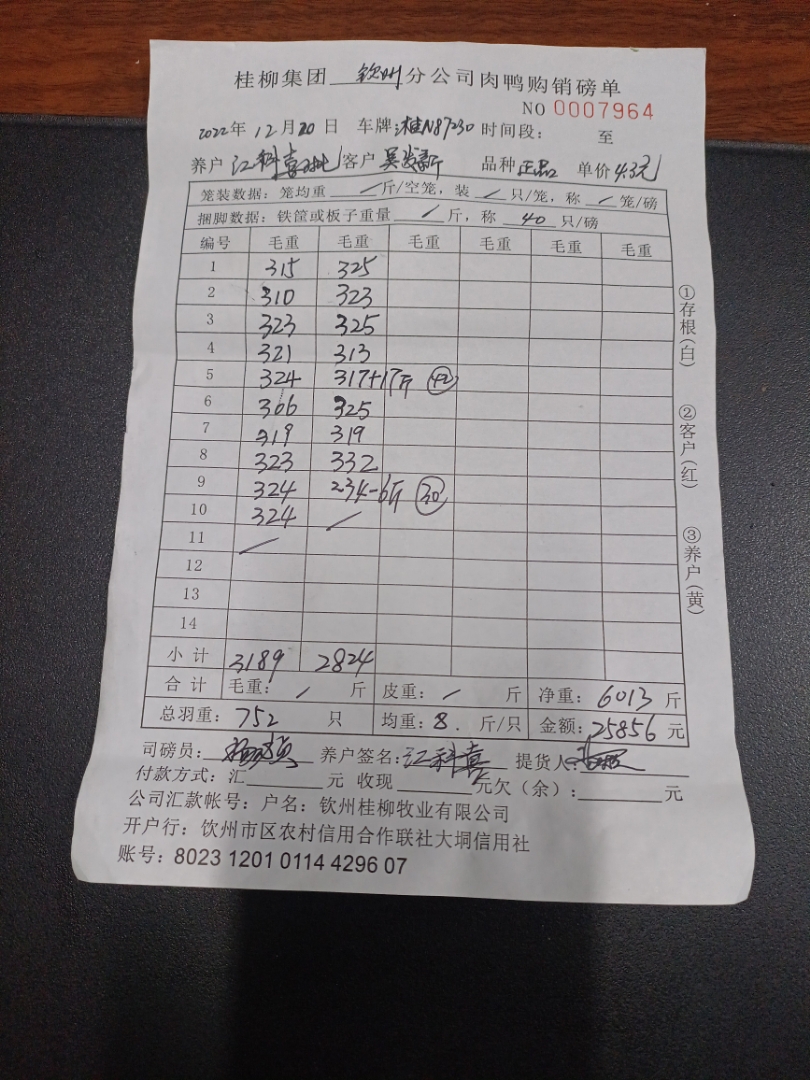 桂柳集团 钦州 分公司肉鸭购销磅单
NO 0007964
2022年 12月 20 日 车牌:桂N87230 时间段: 至
养户 江科喜 客户 吴发新 品种 正品 单价 4.3元
笼装数据:笼均重 / 斤/空笼,装 / 只/笼,称 / 笼/磅
捆脚数据:铁筐或板子重量 / 斤,称 40 只/磅
编号 毛重 毛重 毛重 毛重 毛重 毛重
1 315 325
2 310 323
3 323 325
4 321 313
5 324 317+17斤 42
6 306 325
7 319 319
8 323 332
9 324 234-6斤 30
10 324 /
11 /
12
13
14
小计 3189 2824
合计 毛重: / 斤 皮重: / 斤 净重: 6013 斤
总羽重: 752 只 均重: 8. 斤/只 金额: 25856 元
司磅员: 养户签名: 江科喜 提货人:
付款方式:汇 元 收现 元欠(余): 元
公司汇款帐号:户名:钦州桂柳牧业有限公司
开户行:钦州市区农村信用合作联社大垌信用社
账号:8023 1201 0114 4296 07
①存根(白)
②客户(红)
③养户(黄)